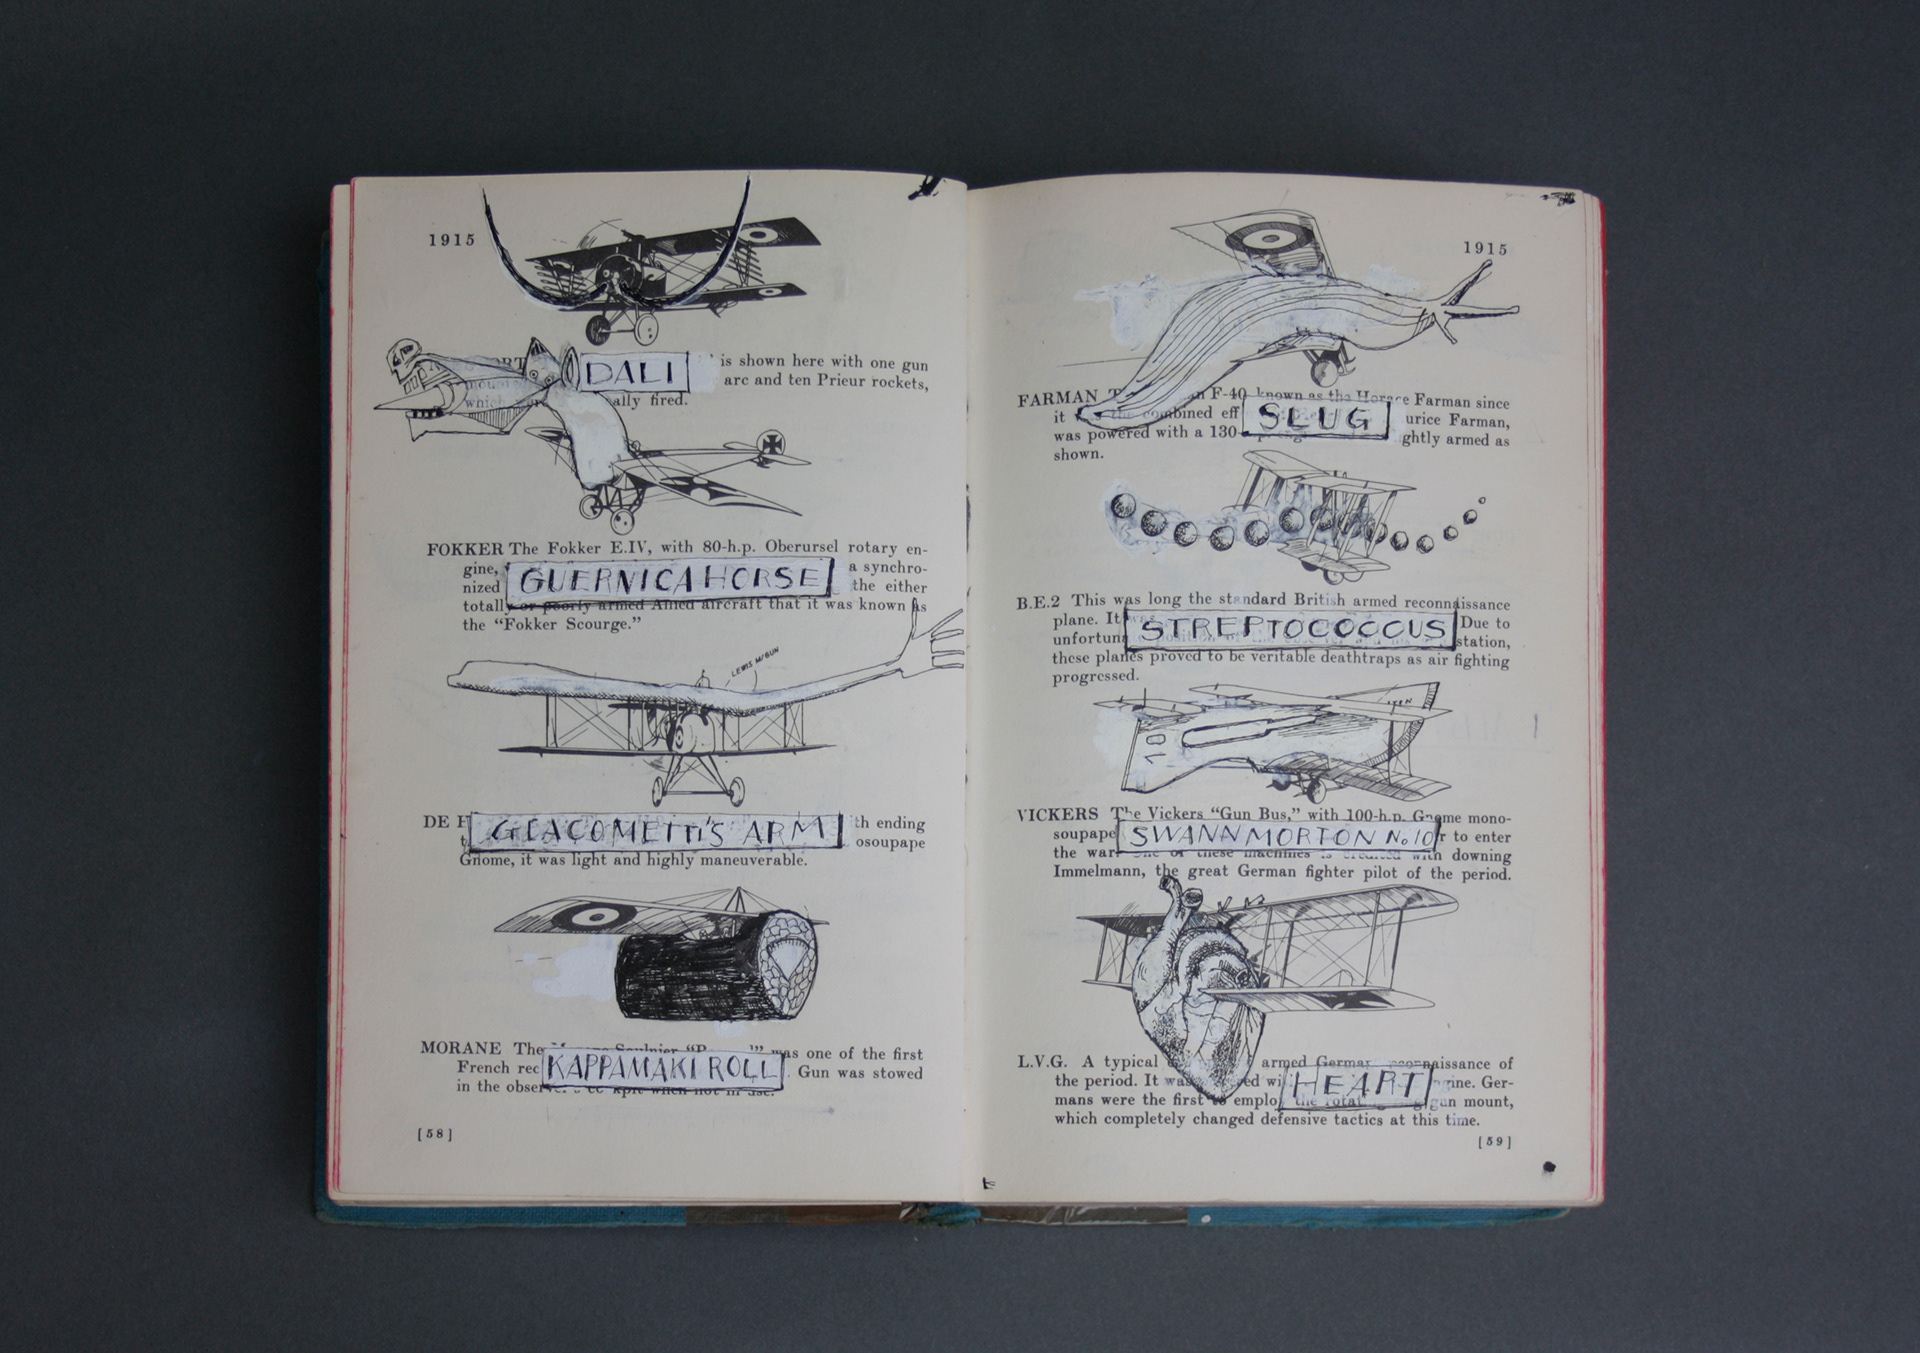 1915
DALI is shown here with one gun
arc and ten Prieur rockets,
which ally fired.
FOKKER The Fokker E.IV, with 80-h.p. Oberursel rotary en-
gine, a synchro-
nized GUERNICA HORSE the either
totally or poorly armed Allied aircraft that it was known as
the “Fokker Scourge.”
LEWIS M/GUN
DE th ending
GIACOMETTI'S ARM osoupape
Gnome, it was light and highly maneuverable.
MORANE The was one of the first
French rec KAPPAMAKI ROLL . Gun was stowed
in the when not in use.
[58]
1915
FARMAN F-40 known as the Horace Farman since
it the combined eff SLUG urice Farman,
was powered with a 130- ghtly armed as
shown.
B.E.2 This was long the standard British armed reconnaissance
plane. It Due to
unfortun STREPTOCOCCUS station,
these planes proved to be veritable deathtraps as air fighting
progressed.
10
VICKERS The Vickers “Gun Bus,” with 100-h.p. Gnome mono-
soupape SWANN MORTON No. 10 r to enter
the war. One of these machines is credited with downing
Immelmann, the great German fighter pilot of the period.
L.V.G. A typical armed German reconnaissance of
the period. It was ed wi HEART gine. Ger-
mans were the first to employ the gun mount,
which completely changed defensive tactics at this time.
[59]